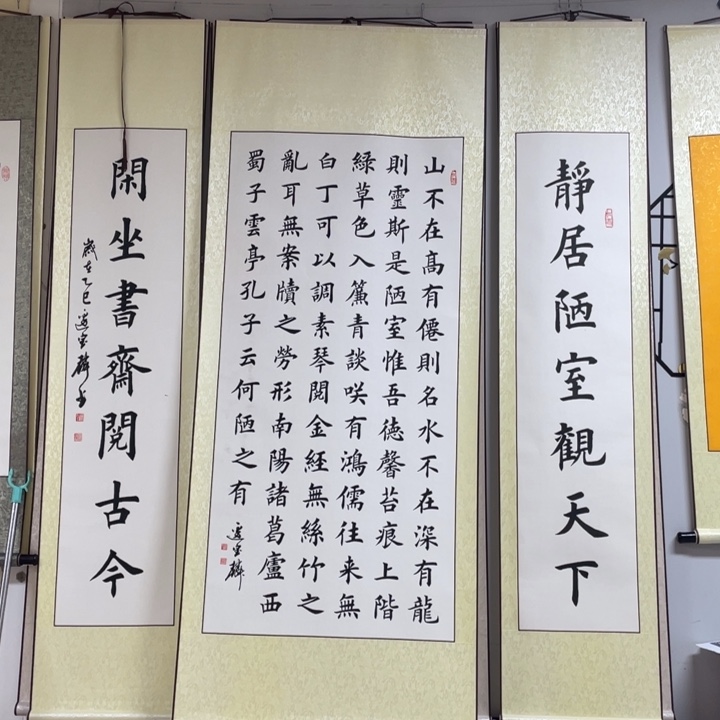 靜居陋室觀天下
山不在高有僊則名水不在深有龍
則靈斯是陋室惟吾德馨苔痕上階
綠草色入簾青談咲有鴻儒往来無
白丁可以調素琴閱金經無絲竹之
亂耳無案牘之勞形南陽諸葛廬西
蜀子雲亭孔子云何陋之有
閑坐書齋閱古今
歲在乙巳